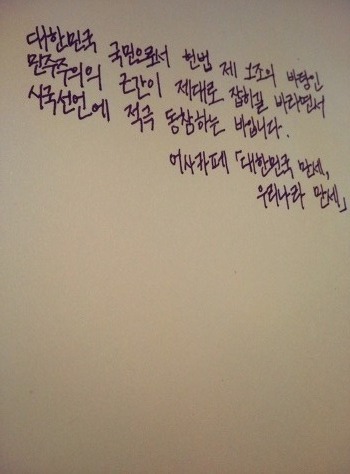 대한민국 국민으로서 헌법 제 1조의 바탕인
민주주의의 근간이 제대로 잡히길 바라면서
시국선언에 적극 동참하는 바입니다.
여사카페 「대한민국 만세,
우리나라 만세」